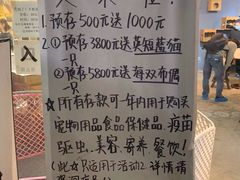 1. 预存500元送1000元
2. ①预存3800元送英短蓝猫
一只
②预存5800元送海双布偶
一只
☆所有存款可一年内用于购买
宠物用品食品保健品,疫苗
驱虫、美容、寄养、餐饮!
(此☆只适用于活动2 详情请